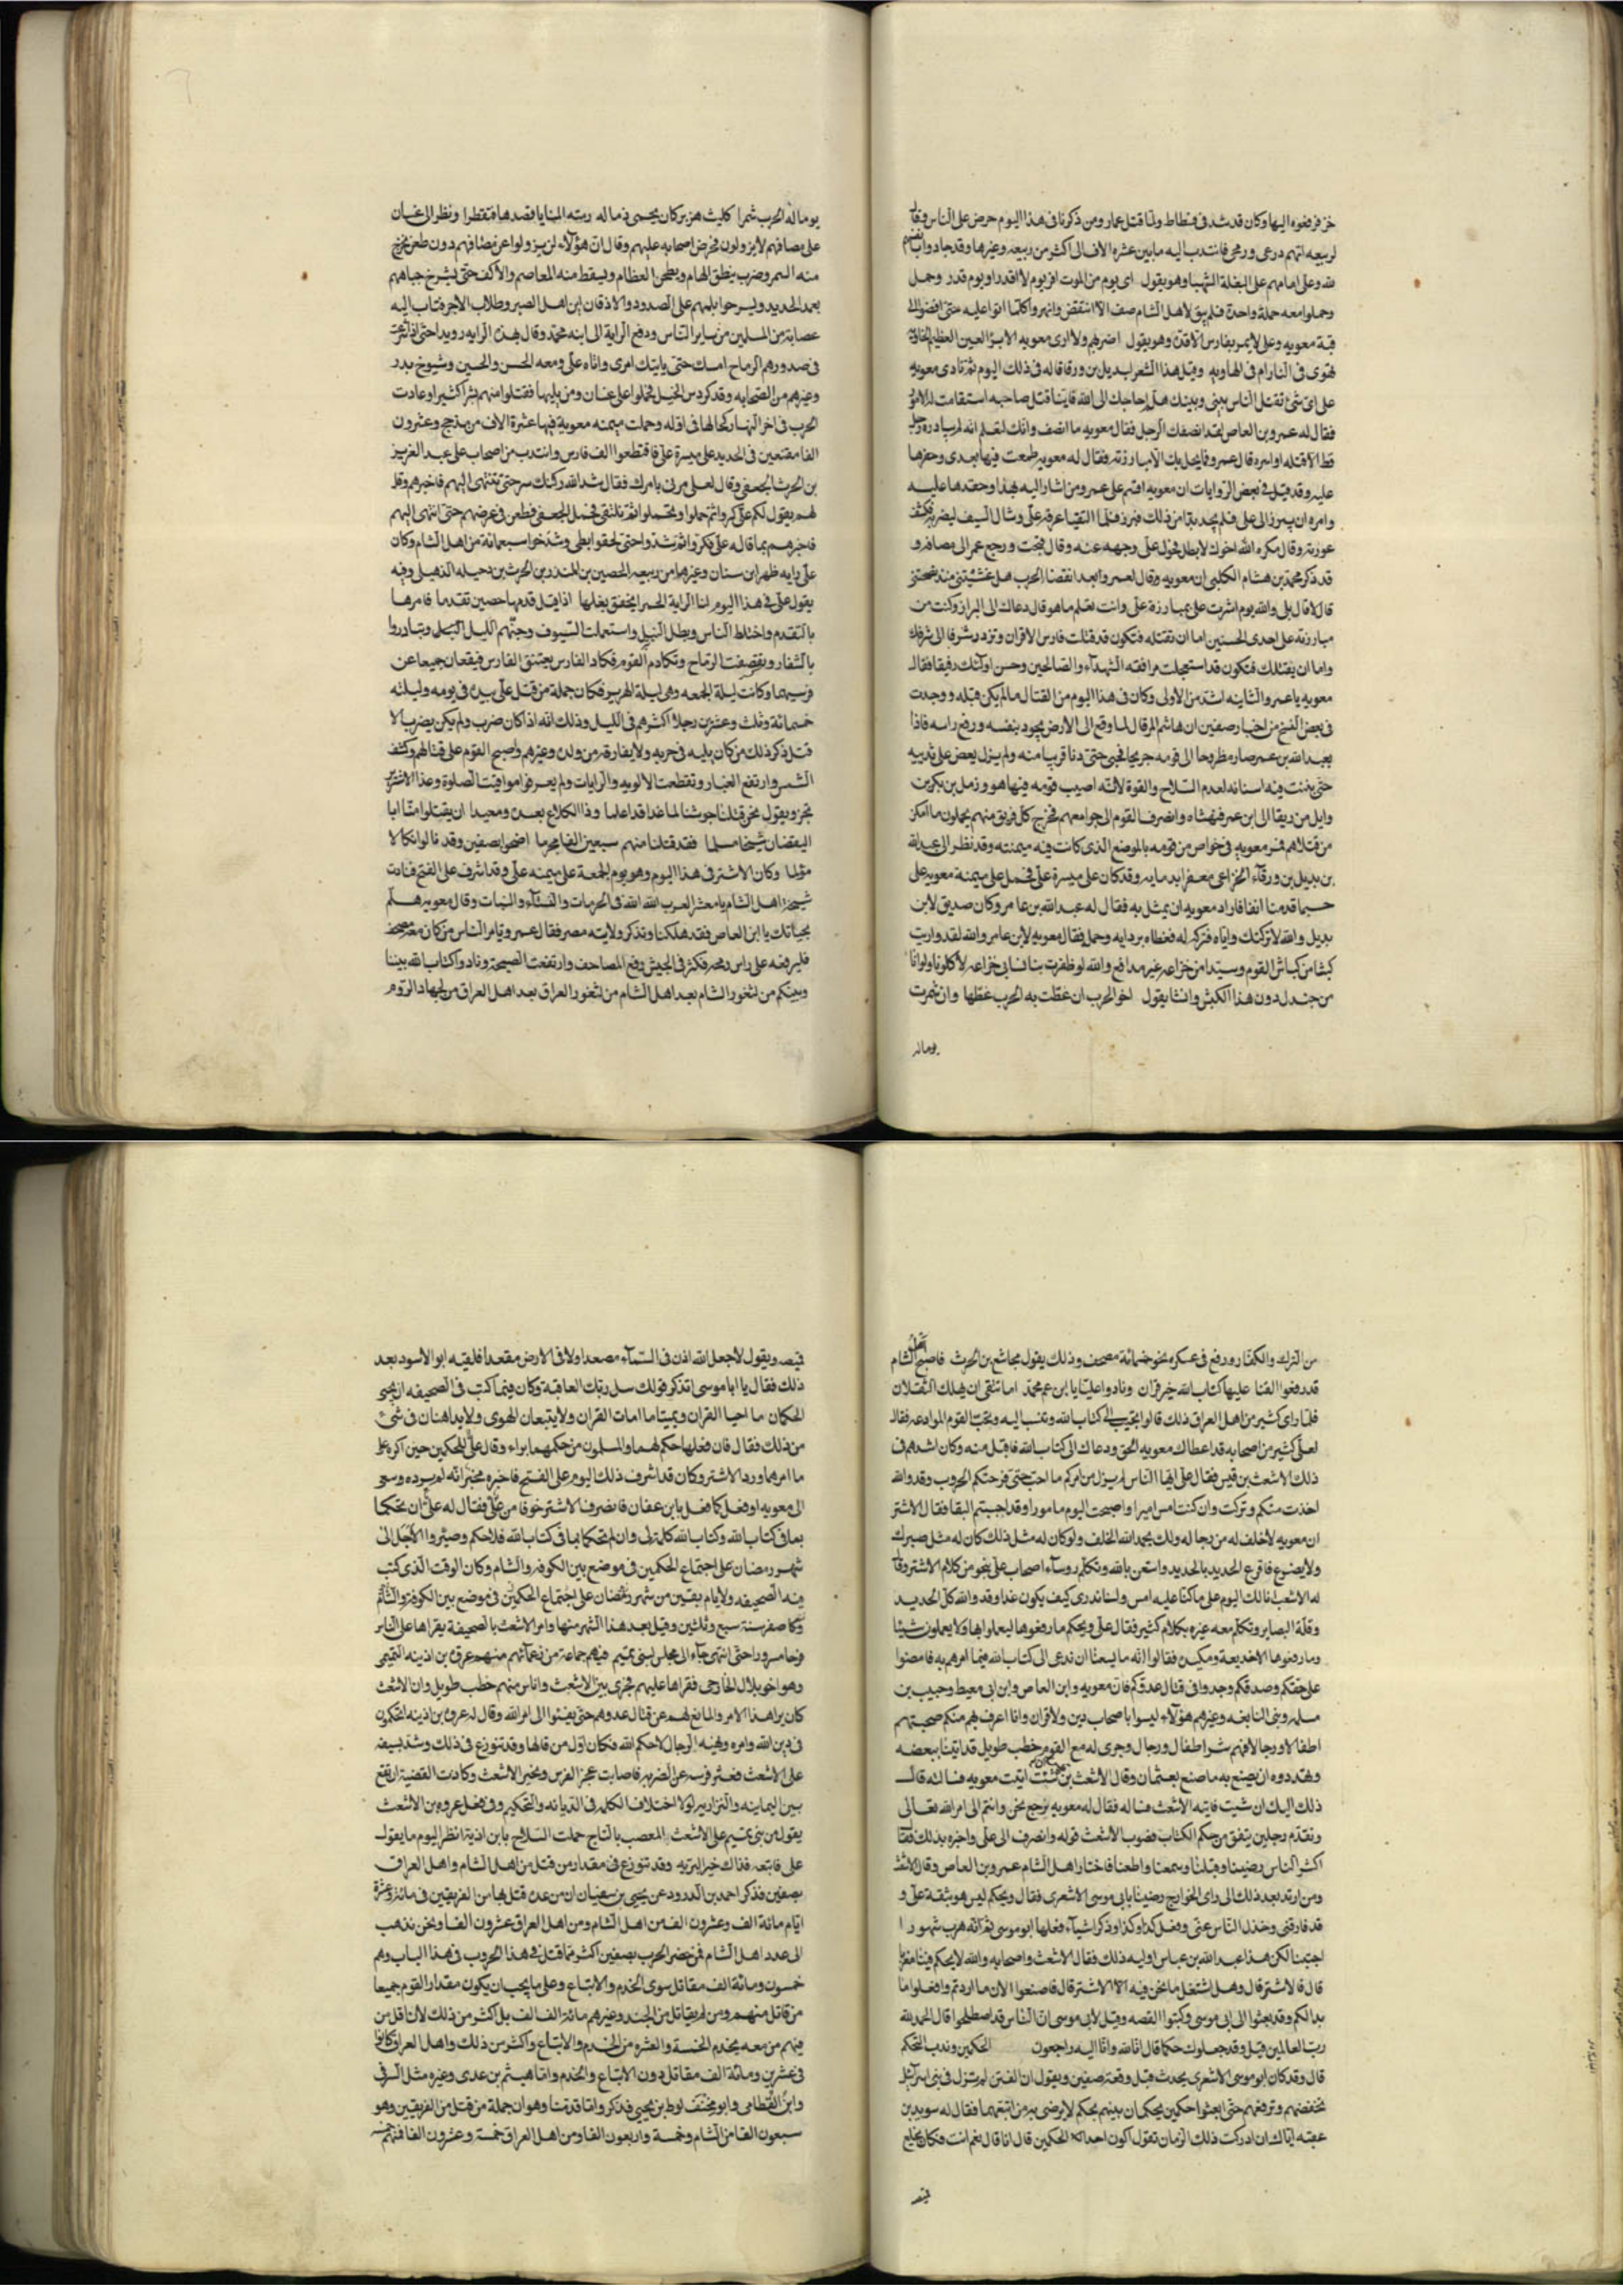 خز فرفعوه اليها وكان قد شد فى فسطاط ولما قتل عمار ومن ذكرنا فى هذا اليوم حرض على الناس وقال
لربيعه انتم درعى ورمحى فانتدب اليه ما بين عشره الاف الى اكثر من ربيعه وغيرها وقد جادوا بانفسهم
لله وعلى امامهم على البغلة الشهبا وهو يقول اى يوم من الموت افر يوم لا اقدر او يوم قدر وحمل
وحملوا معه حملة واحدة فلم يبق لاهل الشام صف الا انتقض وانهروا كلما اتوا عليه حتى افضوا الى
قبة معويه وعلى لا يمر بفارس الا قده وهو يقول اضربهم ولا ارى معويه الابرز العين العظيم الحاويه
تهوى فى النار ام فى الهاويه وقيل هذا الشعر لبديل بن ورقا قاله فى ذلك اليوم ثم نادى معويه
على اى شئ نقتل الناس بينى وبينك هلم احاجك الى الله فاينا قتل صاحبه استقامت له الامور
فقال له عمرو بن العاص لقد انصفك الرجل فقال معويه ما انصف وانك لتعلم انه لم يبارزه رجل
قط الا قتله او اسره قال عمرو فما يجمل بك الا مبارزته فقال له معويه طمعت فيها بعدى وحقرها
عليه وقد قيل فى بعض الروايات ان معويه اقسم على عمرو من اشار اليه بهذا وحقدها عليه
وامره ان يبرز الى على فلم يجد بدا من ذلك فبرز فلما التقيا عرفه على وشال السيف ليضربه فكشف
عورته وقال مكره اخوك لا بطل فحول على وجهه عنه وقال قبحت ورجع عمرو الى مصافه و
قد ذكر محمد بن هشام الكلبى ان معويه وقال لعمرو بعد انقضا الحرب هل غششتنى منذ نصحتنى
قال لا قال بلى والله يوم اشرت على بمبارزة على وانت تعلم ما هو قال دعاك الى البراز وكنت من
مبارزته على احدى الحسنيين اما ان تقتله فتكون قد قتلت فارس الاقران وتزدد شرفا الى شرفك
واما ان يقتلك فتكون قد استعجلت مرافقه الشهداء والصالحين وحسن اولئك رفيقا فقال
معويه يا عمرو الثانيه اشد من الاولى وكان فى هذا اليوم من القتال ما لم يكن قبله ووجدت
فى بعض النسخ من اخبار صفين ان هاشم المرقال لما وقع الى الارض يجود بنفسه ورفع راسه فاذا
بعبد الله بن عمر صار مطروحا الى قومه جريحا فحبى حتى دنا قريبا منه ولم يزل يعض على ثدييه
حتى ثبتت فيه اسنانه لعدم السلاح والقوة لانه اصيب قومه فيها هو ورجل من بكر بن
وايل من ديقا الى ابن عمر فنهشاه وانصرف القوم الى جوامعهم فخرج كل فريق منهم يحملون ما امكن
من قتلاهم فمر معويه فى خواص من قومه بالموضع الذى كانت فيه ميمنته وقد نظر الى عبد الله
بن بديل بن ورقاء الخزاعى معفرا بدمايه وقد كان على ميسرة على فحمل على ميمنة معويه على
حسبما قدمنا انفا فاراد معويه ان يمثل به فقال له عبد الله بن عامر وكان صديق لابن
بديل والله لا تركتك واياه فتركه له فغطاه بردايه وحمله فقال معويه لابن عامر والله لقد واريت
كبشا من كباش القوم وسيدا من خزاعه غير مدافع والله لو ظفرت بنا نسا بنى خزاعه لاكلونا ولو انا
من جندل دون هذا الكبش وانشا يقول اخو الحرب ان عضت به الحرب عضها وان شمرت
يوما له
يوما له الحرب شمرا كليث هزبر كان يحمى ذماله رمته المنايا قصدها فتقطرا ونظر الى غسان
على مصافهم لا يزولون فحرض اصحابه عليهم وقال ان هؤلاء لن يزولوا عن مصافهم دون طعن يخرج
منه النسم وضرب يفلق الهام ويطحن العظام ويسقط منه المعاصم والاكف حتى يشرخ جباههم
بعمد الحديد وليسرحوا بلمهم على الصدود والاذقان اين اهل الصبر وطلاب الاجر فتاب اليه
عصابة من المسلمين من ساير الناس ودفع الراية الى ابنه محمد وقال بهذه الرايه رويدا حتى اذا شرعت
فى صدورهم الرماح امسك حتى ياتيك امرى واتاه على ومعه الحسن والحسين وشيوخ بدر
وغيرهم من الصحابه وقد كردس الخيل فحملوا على غسان ومن يليها فقتلوا منهم بشرا كثيرا وعادت
الحرب فى اخر النهار كحالها فى اوله وحملت ميمنه معوية فيها عشرة الاف من مذحج وعشرون
الفا مقنعين فى الحديد على ميسرة على فاقتطعوا الف فارس وانتدب من اصحاب على عبد العزيز
بن الحرث الجعفى وقال لعلى مرنى بامرك فقال شد الله ركنك سر حتى تنتهى اليهم فاخبرهم وقل
لهم يقول لكم على كروا ثم حملوا ونحملوا ثم نلتقى فحمل الجعفى فطعن فى عرضهم حتى انتهى اليهم
فاخبرهم بما قاله على فكروا ثم شدوا حتى لحقوا بعلى وشدخوا سبعمائة من اهل الشام وكان
على رايه ظهر ابن سنان وغيرها من ربيعه الحصين بن المنذر بن الحرث بن دحيله الذهيلى وفيه
يقول على فى هذا اليوم لنا الراية الحمرا يخفق بظلها اذا قيل قدمها حصين تقدما فامرها
بالتقدم واختلط الناس وبطل النبل واستعملت السيوف وجنهم الليل النبل وتبادروا
بالشفار وتقصفت الرماح وتكادم القوم فكاد الفارس يعتنق الفارس فيقعان جميعا عن
فرسيهما وكانت ليلة الجمعه وهى ليلة الهرير فكان جملة من قتل على بيده فى يومه وليلته
خسمائة وثلث وعشرين رجلا اكثرهم فى الليل وذلك انه اذا كان ضرب ولم يكن يضرب الا
قتل ذكر ذلك من كان يليه فى حربه ولا يفارقه من ولده وغيرهم واصبح القوم على قتالهم وكشف
الشمس وارتفع الغبار وتقطعت الالويه والرايات ولم يعرفوا مواقيت الصلوة وغدا الاشتر
يرتجز ويقول نحن قتلنا جوشنا لما غدا قد اعلما وذا الكلاع بعده ومعبدا ان يقتلوا منا ابا
اليقضان شيخا مسلما فقد قتلنا منهم سبعين الفا مجرما اضحوا بصفين وقد نالوا نكالا
مؤلما وكان الاشتر فى هذا اليوم وهو يوم الجمعة على ميمنه على وقد اشرف على الفتح فنادت
شيخة اهل الشام يا معشر العرب الله الله فى الحرمات والنساء والنبات وقال معويه هلم
بحياتك يا ابن العاص فقد هلكنا وتذكر ولايته مصر فقال عمرو يا مر الناس من كان معه مصحف
فليرفعه على راس رمحه فكثر فى الجيش رفع المصاحف وارتفعت الصيحة ونادوا كتاب الله بيننا
وبينكم من لثغور الشام بعد اهل الشام من لثغور العراق بعد اهل العراق من لجهاد الروم
من الترك والكفار ورفع فى عسكره نحو خمسمائة مصحف وذلك يقول مجاشع بن الحرث فاصبح اهل الشام
قد رفعوا القنا عليها كتاب الله خير قران ونادوا عليا يا ابن عم محمد اما تتقى ان يهلك الثقلان
فلما راى كثير من اهل العراق ذلك قالوا نجيب الى كتاب الله وننيب اليه ونحب القوم الموادعه فقال
لعلى كثير من اصحابه قد اعطاك معويه الحق ودعاك الى كتاب الله فاقبل منه وكان اشدهم فى
ذلك الاشعث بن قيس فقال على ايها الناس لم يزل من امركم ما احب حتى قرحتكم الحروب وقد والله
اخذت منكم وتركت وان كنت امس اميرا واصبحت اليوم مامورا وقد احببتم البقا فقال الاشتر
ان معويه لا خلف له من رجاله ولك بحمد الله الخلف ولو كان له مثل ذلك كان له مثل صبرك
ولا يضوع فاقرع الحديد بالحديد واستعن بالله وتكلم روساء اصحاب على بنحو من كلام الاشتر وقال
له الاشعث انا لك اليوم على ما كنا عليه امس ولسنا ندرى كيف يكون غدا وقد والله كل الحديد
وقلة البصاير وتكلم معه غيره بكلام كثير فقال على ويحكم ما رفعوها ليعملوا بها ولا يعملون شيئا
وما رفعوها الا خديعة ومكيده فقالوا انه ما يسعنا ان ندعى الى كتاب الله فيما امرهم به فامضوا
على حقكم وصدقكم وجدوا فى قتال عدوكم فان معويه وابن العاص وابن ابى معيط وحبيب بن
مسلمه وبنى النابغه وغيرهم هؤلاء ليسوا باصحاب دين ولا قران وانا اعرف بهم منكم صحبتهم
اطفالا ورجالا فهم شر اطفال ورجال وجرى له مع القوم خطب طويل قد اتينا ببعضه
وهددوه ان يصنع به ما صنع بعثمان وقال الاشعث بن قيس ان شئت اتيت معويه فسالته قال
ذلك اليك ان شيت فاتيه الاشعث فساله فقال له معويه نرجع نحن وانتم الى امر الله تعالى
ونقدم رجلين يتفق من حكم الكتاب فصوب الاشعث قوله وانصرف الى على واخبره بذلك فقال
اكثر الناس رضينا وقبلنا وسمعنا واطعنا فاختار اهل الشام عمرو بن العاص وقال الاشعث
ومن ارتد بعد ذلك الى راى الخوارج رضينا بابى موسى الاشعرى فقال ويحكم ليس هو بثقة على و
قد فارقنى وخذل الناس عنى وفعل كذا وكذا وذكر اشياء فعلها ابو موسى ثم انه هرب شهورا
اجتبنا لكن هذا عبد الله بن عباس اوليه ذلك فقال الاشعث واصحابه والله لا يحكم فينا مضريا
قال فالاشتر قال وهل اشتعل ما نحن فيه الا الاشتر قال فاصنعوا الان ما اردتم وافعلوا ما
بدا لكم وقد بعثوا الى ابى موسى وكتبوا القصه وقيل لابى موسى ان الناس قد اصطلحوا قال الحمد لله
رب العالمين قيل وقد جعلوك حكما قال انا لله وانا اليه راجعون الحكمين وندب التحكم
قال وقد كان ابو موسى الاشعرى يحدث قبل وقعه صفين ويقول ان الفتن لم تزل فى بنى اسرائيل
تخفضهم وترفعهم حتى ابعثوا حكمين يحكمان بينهم بحكم لا يرضى به من اتبعهما فقال له سويد بن
عقبه اياك ان ادركت ذلك الزمان تقول اكون احد الحكمين قال انا قال نعم انت فكان يخلع
قميصه ويقول لا جعل الله اذن فى السماء مصعدا ولا فى الارض مقعدا فلقيه ابو الاسود بعد
ذلك فقال يا ابا موسى اتذكر قولك سل ربك العاقبة وكان فيما كتب فى الصحيفه ان يحيى
الحكمان ما احيا القران ويميتا ما امات القران ولا يتبعان الهوى ولا يداهنان فى شئ
من ذلك فقال فان فعلها حكم لهما والمسلون من حكمهما براء وقال على للحكمين حين اكره على
ما امرهما ورد الاشتر وكان قد اشرف ذلك اليوم على الفتح فاخبره مخبر انه لم يرده وسعى
الى معويه او فعل كما فعل يا بن عفان فانصرف الاشتر خوفا من على فقال له على ان تحكما
بما فى كتاب الله وكتاب الله كله لى وان لم تحكما بما فى كتاب الله فلا حكم وصيروا الاجل الى
شهر رمضان على اجتماع الحكمين فى موضع بين الكوفه والشام وكان الوقت الذى كتب
فيه الصحيفه ولايام بقين من شهر رمضان على اجتماع الحكمين فى موضع بين الكوفة والشام
وكا صفر سنة سبع وثلثين وقيل بعد هذا الشهر منها وامر الاشعث بالصحيفة يقراها على الناس
فرحا مسرورا حتى انتهى جاء الى مجلس لبنى تميم فيهم جماعة من زعمائهم منهم عروة بن اذينه التميمى
وهو اخو بلال الخارجى فقراها عليهم فجرى بين الاشعث واناس منهم خطب طويل وان الاشعث
كان بدا هذا الامر والمانع لهم عن قتال عدوهم حتى يفيئوا الى امر الله وقال له عروة بن اذينه اتحكمون
فى دين الله وامره ونهيه الرجال لا حكم الا لله فكان اول من قالها وقد تنوزع فى ذلك وشد بسيفه
على الاشعث فعثر فرسه عن الضربه فاصابت عجز الفرس ونجى الاشعث وكادت القضية ان تقع
بين اليمانيه والنزاريه لولا اختلاف الكلمه فى الديانه والتحكيم وفى فعل عروه بن الاشعث
يقول من بنى تميم على الاشعث المعصب بالتاج حملت السلاح يا بن اذية انظر اليوم ما يقول
على فاتبعه فذاك خير البريه وقد تنوزع فى مقدار من قتل من اهل الشام واهل العراق
بصفين فذكر احمد بن الدرود عن يحيى بن سفيان ان من عده قتل بها من الفريقين فى مائة وعشرة
ايام مائة الف وعشرون الف من اهل الشام ومن اهل العراق عشرون الفا ونحن نذهب
الى عدد اهل الشام فمن حضر الحرب بصفين اكثر مما قتل فى هذا الحروب فى هذا الباب وهم
خمسون ومائة الف مقاتل سوى الخدم والاتباع وعلى ما يجب ان يكون مقدار القوم جميعا
من قاتل منهم ومن لم يقاتل من الجند وغيرهم مائة الف الف بل اكثر من ذلك لان اقل من
فيهم من معه يخدم الخمسة والعشره من الخدم والاتباع واكثر من ذلك واهل العراق كانوا
فى عشرين ومائة الف مقاتل دون الاتباع والخدم واما هيثم بن عدى وغيره مثل الشرقى
وابن القطامى وابو مخنف لوط بن يحيى فذكروا ما قدمنا وهو ان جملة من قتل من الفريقين وهو
سبعون الفا من الشام وخمسة واربعون الفا ومن اهل العراق خمسة وعشرون الفا فيهم خمسه